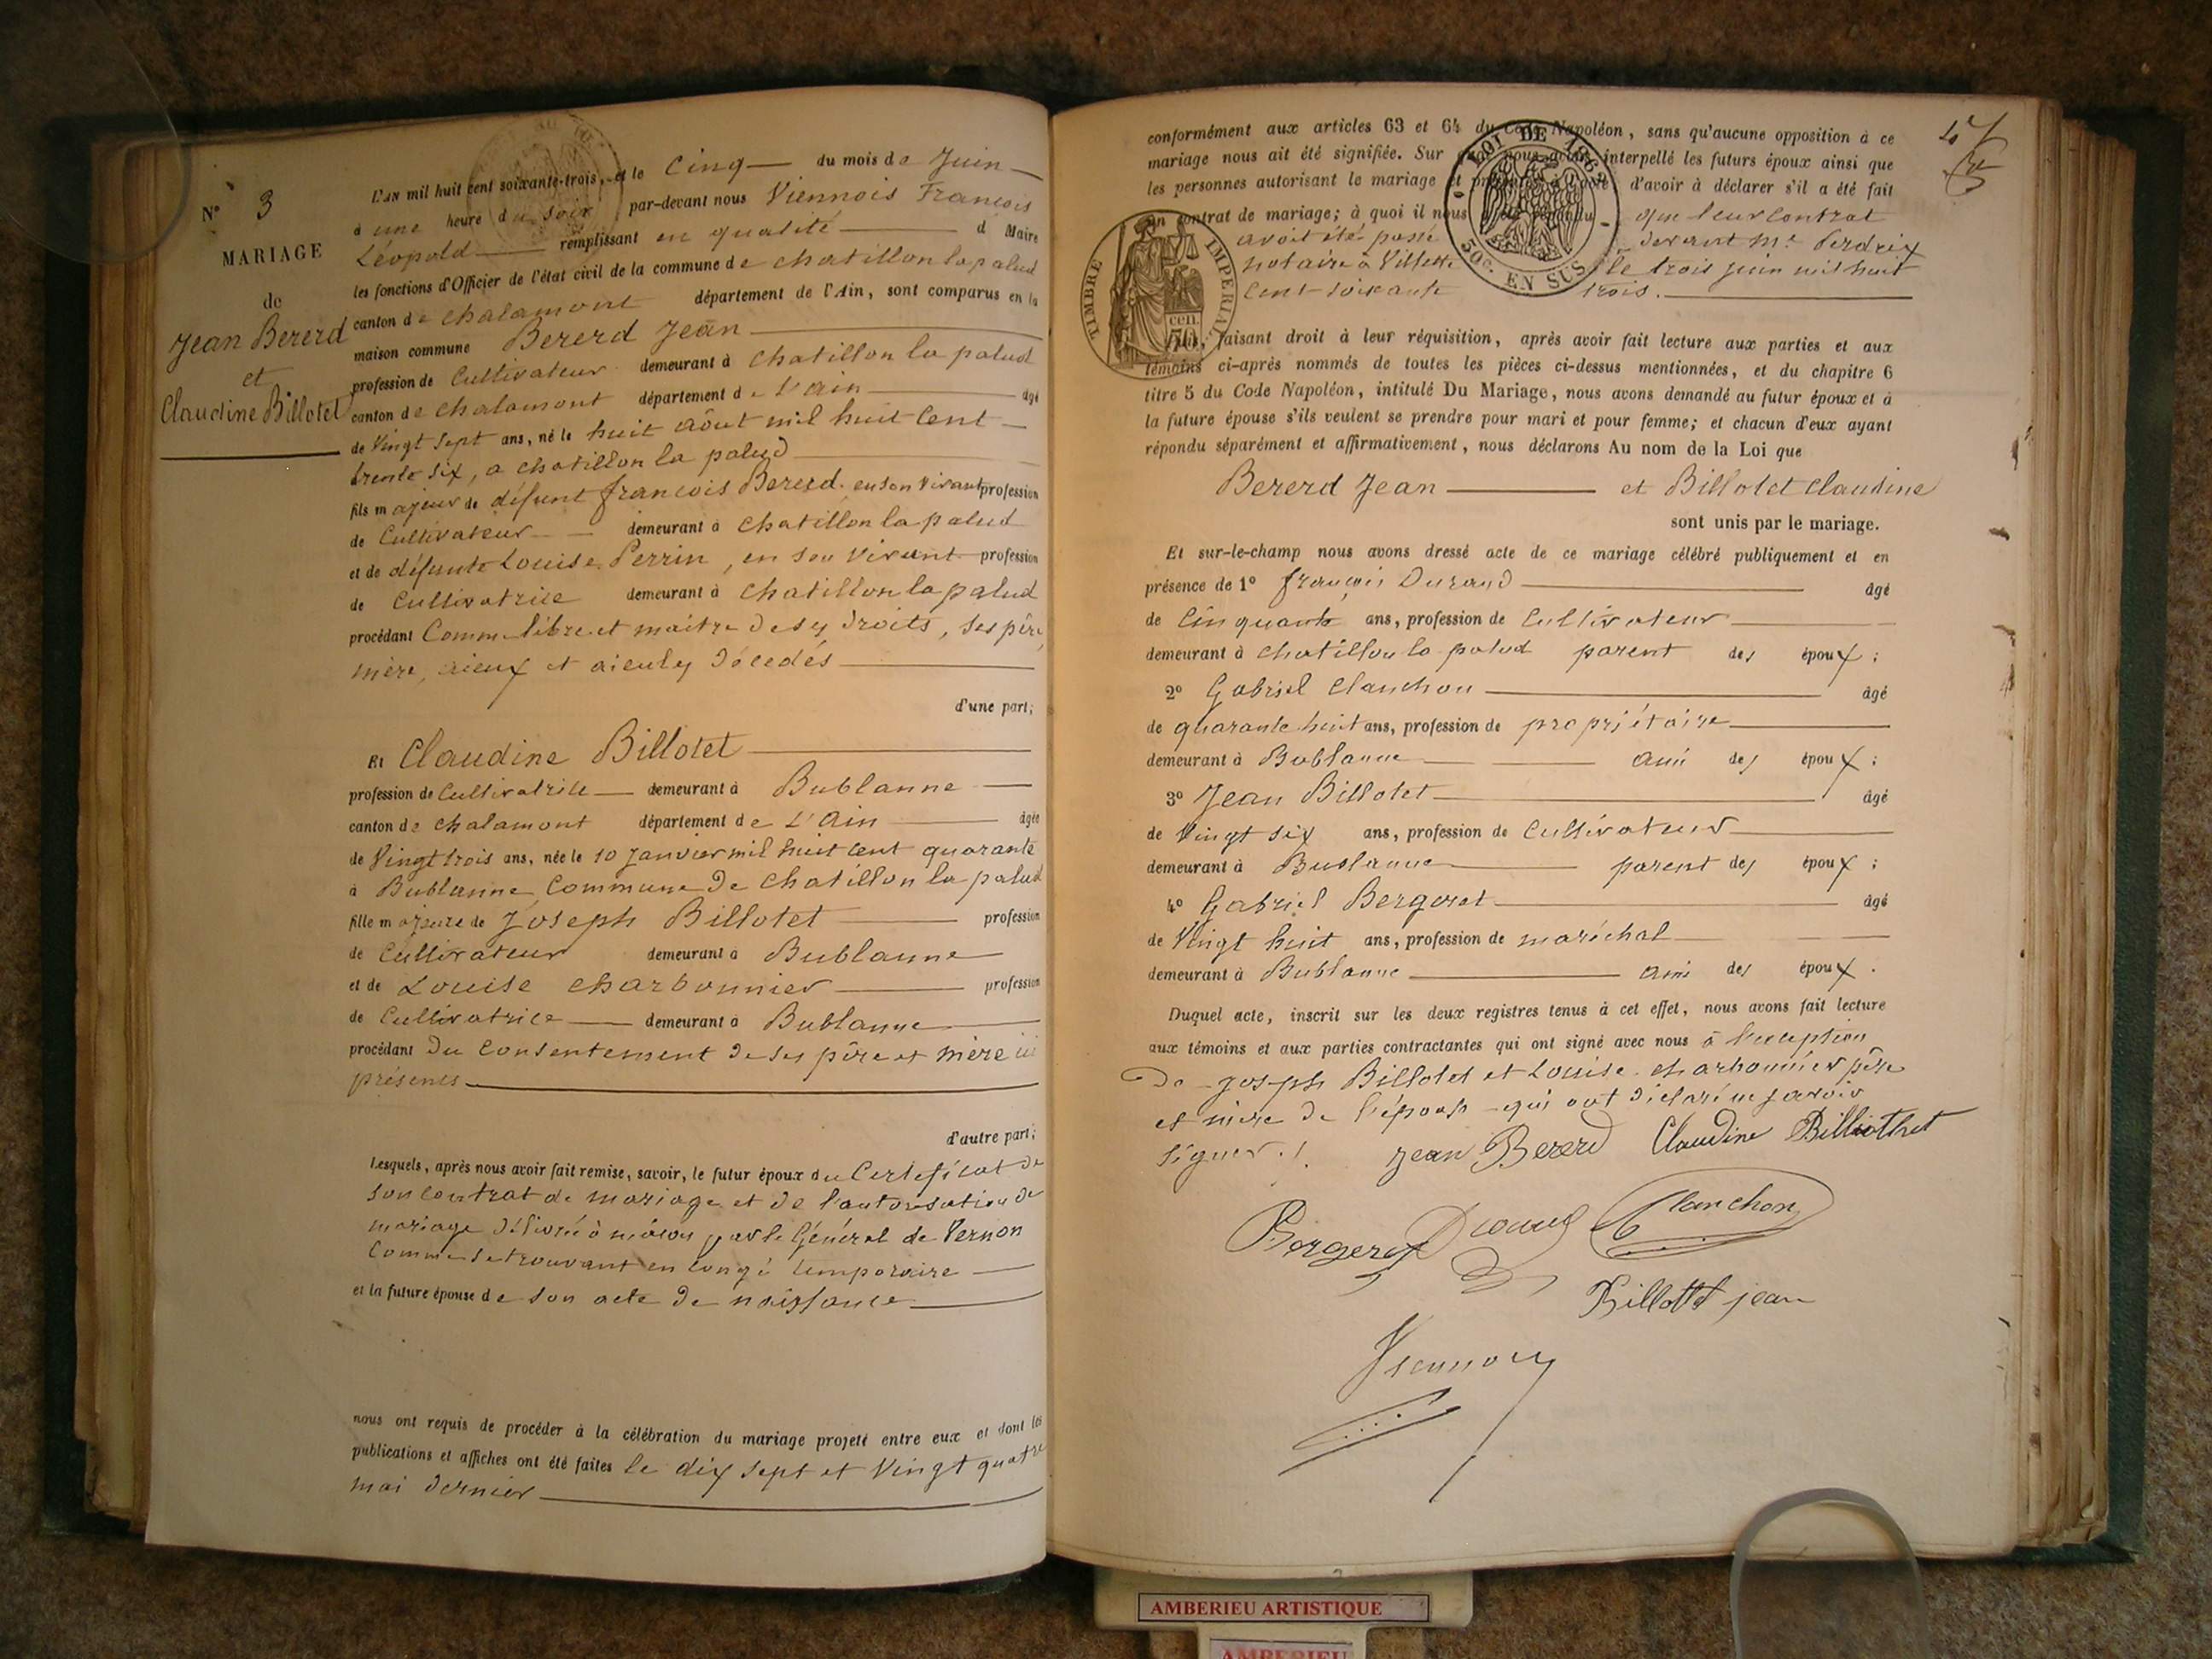 N° 3
MARIAGE
de
Jean Bererd
et
Claudine Billotet
L'AN mil huit cent soixante-trois, et le cinq du mois de Juin
à une heure du soir par-devant nous Viennois François
Léopold remplissant en qualité d Maire
les fonctions d'Officier de l'état civil de la commune de chatillon la palud
canton de chalamont département de l'Ain, sont comparus en la
maison commune Bererd Jean
profession de Cultivateur demeurant à chatillon la palud
canton de chalamont département de L'ain âgé
de Vingt sept ans, né le huit Aôut mil huit cent
trente six, a chatillon la palud
fils majeur de défunt françois Bererd en son vivant profession
de Cultivateur demeurant à chatillon la palud
et de défunte Louise Perrin, en son vivant profession
de Cultivatrice demeurant à chatillon la palud
procédant Comme libre et maitre de ses droits, ses père,
mère, aieux et aieules décedés
d'une part;
Et Claudine Billotet
profession de Cultivatrice demeurant à Bublanne
canton de chalamont département de L'Ain âgée
de Vingt trois ans, née le 10 Janvier mil huit cent quarante
à Bublanne Commune de chatillon la palud
fille majeure de Joseph Billotet profession
de Cultivateur demeurant à Bublanne
et de Louise charbonnier profession
de Cultivatrice demeurant à Bublanne
procédant du consentement de ses père et mère ici
présents
d'autre part;
Lesquels, après nous avoir fait remise, savoir, le futur époux du Certeficat de
son contrat de mariage et de l'autorisation de
mariage délivré à mâcon par le Général de Vernon
Comme se trouvant en congé temporaire
et la future épouse de son acte de naissance
nous ont requis de procéder à la célébration du mariage projeté entre eux et dont les
publications et affiches ont été faites le dix sept et Vingt quatre
mai dernier
conformément aux articles 63 et 64 du Code Napoléon, sans qu'aucune opposition à ce
mariage nous ait été signifiée. Sur quoi nous avons interpellé les futurs époux ainsi que
les personnes autorisant le mariage et d'avoir à déclarer s'il a été fait
un contrat de mariage; à quoi il nous a été répondu que leur contrat
avoit été passé devant Me Perdrix
notaire à Villette le trois juin mil huit
Cent soixante trois.
LOI DE 1862
50c. EN SUS
TIMBRE IMPERIAL
50 cen.
faisant droit à leur réquisition, après avoir fait lecture aux parties et aux
témoins ci-après nommés de toutes les pièces ci-dessus mentionnées, et du chapitre 6
titre 5 du Code Napoléon, intitulé Du Mariage, nous avons demandé au futur époux et à
la future épouse s'ils veulent se prendre pour mari et pour femme; et chacun d'eux ayant
répondu séparément et affirmativement, nous déclarons Au nom de la Loi que
Bererd Jean et Billotet Claudine
sont unis par le mariage.
Et sur-le-champ nous avons dressé acte de ce mariage célébré publiquement et en
présence de 1° françois Durand âgé
de Cinquante ans, profession de Cultivateur
demeurant à chatillon la palud parent des époux;
2° Gabriel Clanchon âgé
de quarante huit ans, profession de propriétaire
demeurant à Bublanne ami des époux;
3° Jean Billotet âgé
de Vingt six ans, profession de Cultivateur
demeurant à Bublanne parent des époux;
4° Gabriel Bergeret âgé
de Vingt huit ans, profession de maréchal
demeurant à Bublanne ami des époux.
Duquel acte, inscrit sur les deux registres tenus à cet effet, nous avons fait lecture
aux témoins et aux parties contractantes qui ont signé avec nous à l'exception
de joseph Billotet et Louise charbonnier père
et mère de l'épouse qui ont déclaré ne savoir
signer.
Jean Bererd Claudine Billiothet
Bergeret Durand Clanchon
Billottet jean
Viennois
AMBERIEU ARTISTIQUE
AMBERIEU